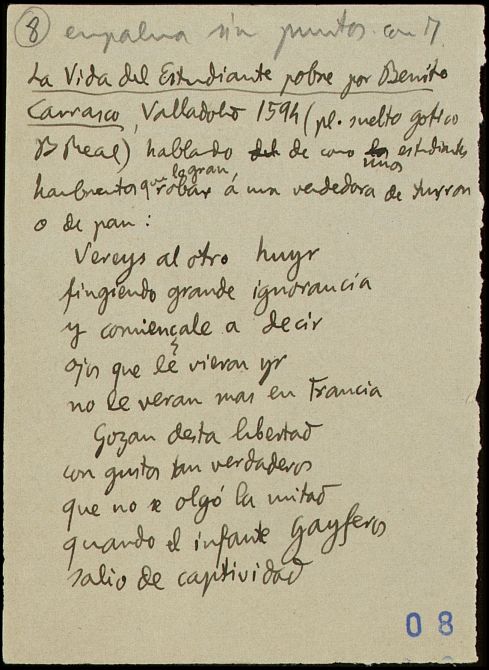 8 empalma sin puntos con 7
La Vida del Estudiante pobre por Benito
Carrasco, Valladolid 1594 (pl. suelto gotico
B Real) hablado de como unos estudiantes
hambrientos que logran robar á una vendedora de turron
o de pan:
Vereys al otro huyr
fingiendo grande ignorancia
y comiençale a decir
ojos que le vieron yr
no le veran mas en Francia
Gozan desta libertad
con gustos tan verdaderos
que no se olgó la mitad
quando el infante Gayferos
salio de captividad
08